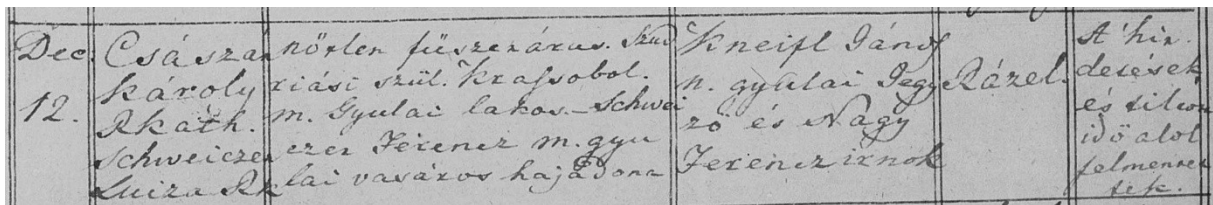 Dec.
12.
Császár
Károly
Rkáth.
Schweiczer
Luiza Rk
nőtlen füszerárus. Skud
riási szül. Krassobol.
m. Gyulai lakos. – Schwei
czer Ferencz m. gyu
lai vasáros hajadona
Kneifl János
n. gyulai Jegy
ző és Nagy
Ferencz irnok
Rázel.
A' hir-
detések
és tilos
idő alol
felmentet
tek.